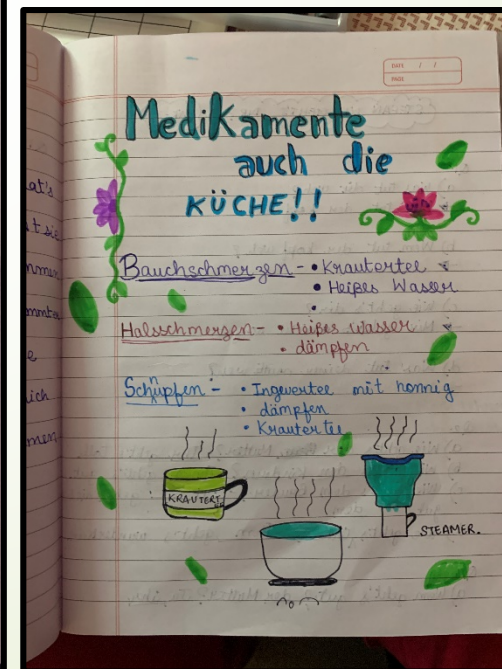 DATE / /
PAGE
Medikamente
auch die
KÜCHE!!
at's
t sie
nmen
mmter
e
ich
men
Bauchschmerzen - • Krautertee
• Heißes Wasser
•
Halsschmerzen - • Heißes Wasser
• dämpfen
Schnüpfen - • Ingwertee mit honnig
• dämpfen
• Krautertee
KRAUTERTEE
STEAMER.